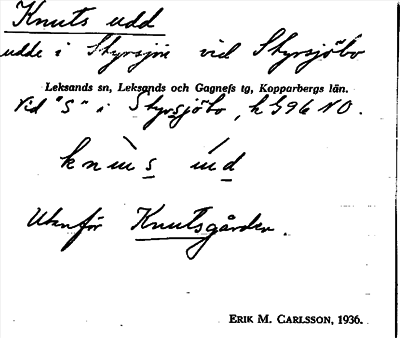 Knuts udd
udde i Styrsjön vid Styrsjöbo
Leksands sn, Leksands och Gagnefs tg, Kopparbergs län.
Vid "S" i Styrsjöbo, k 96 NO.
Utanför Knutsgården.
ERIK M. CARLSSON, 1936.